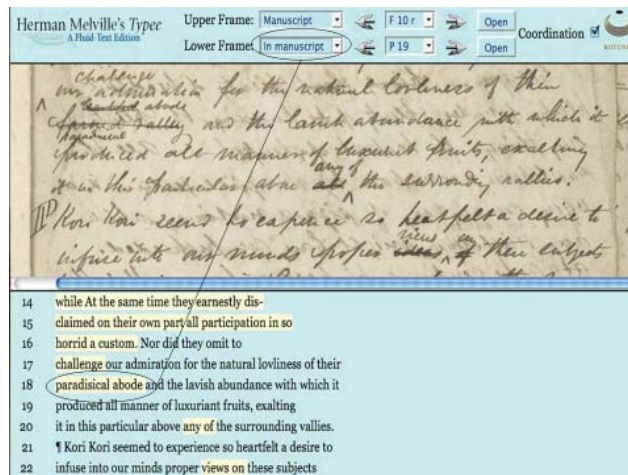 Herman Melville's Typee
A Fluid-Text Edition
Upper Frame: Manuscript F 10 r Open
Lower Frame: In manuscript P 19 Open
Coordination
ROTUNDA
challenge
our admiration for the natural lovliness of their
beautiful abode
valley and the lavish abundance with which it
paradisical
produced all manner of luxuriant fruits, exalting
any of
it in this particular above all the surrounding vallies.
Kori Kori seemd to experience so heartfelt a desire to
views on
infuse into our minds proper ideas of these subjects
14 while At the same time they earnestly dis-
15 claimed on their own part all participation in so
16 horrid a custom. Nor did they omit to
17 challenge our admiration for the natural lovliness of their
18 paradisical abode and the lavish abundance with which it
19 produced all manner of luxuriant fruits, exalting
20 it in this particular above any of the surrounding vallies.
21 ¶ Kori Kori seemed to experience so heartfelt a desire to
22 infuse into our minds proper views on these subjects